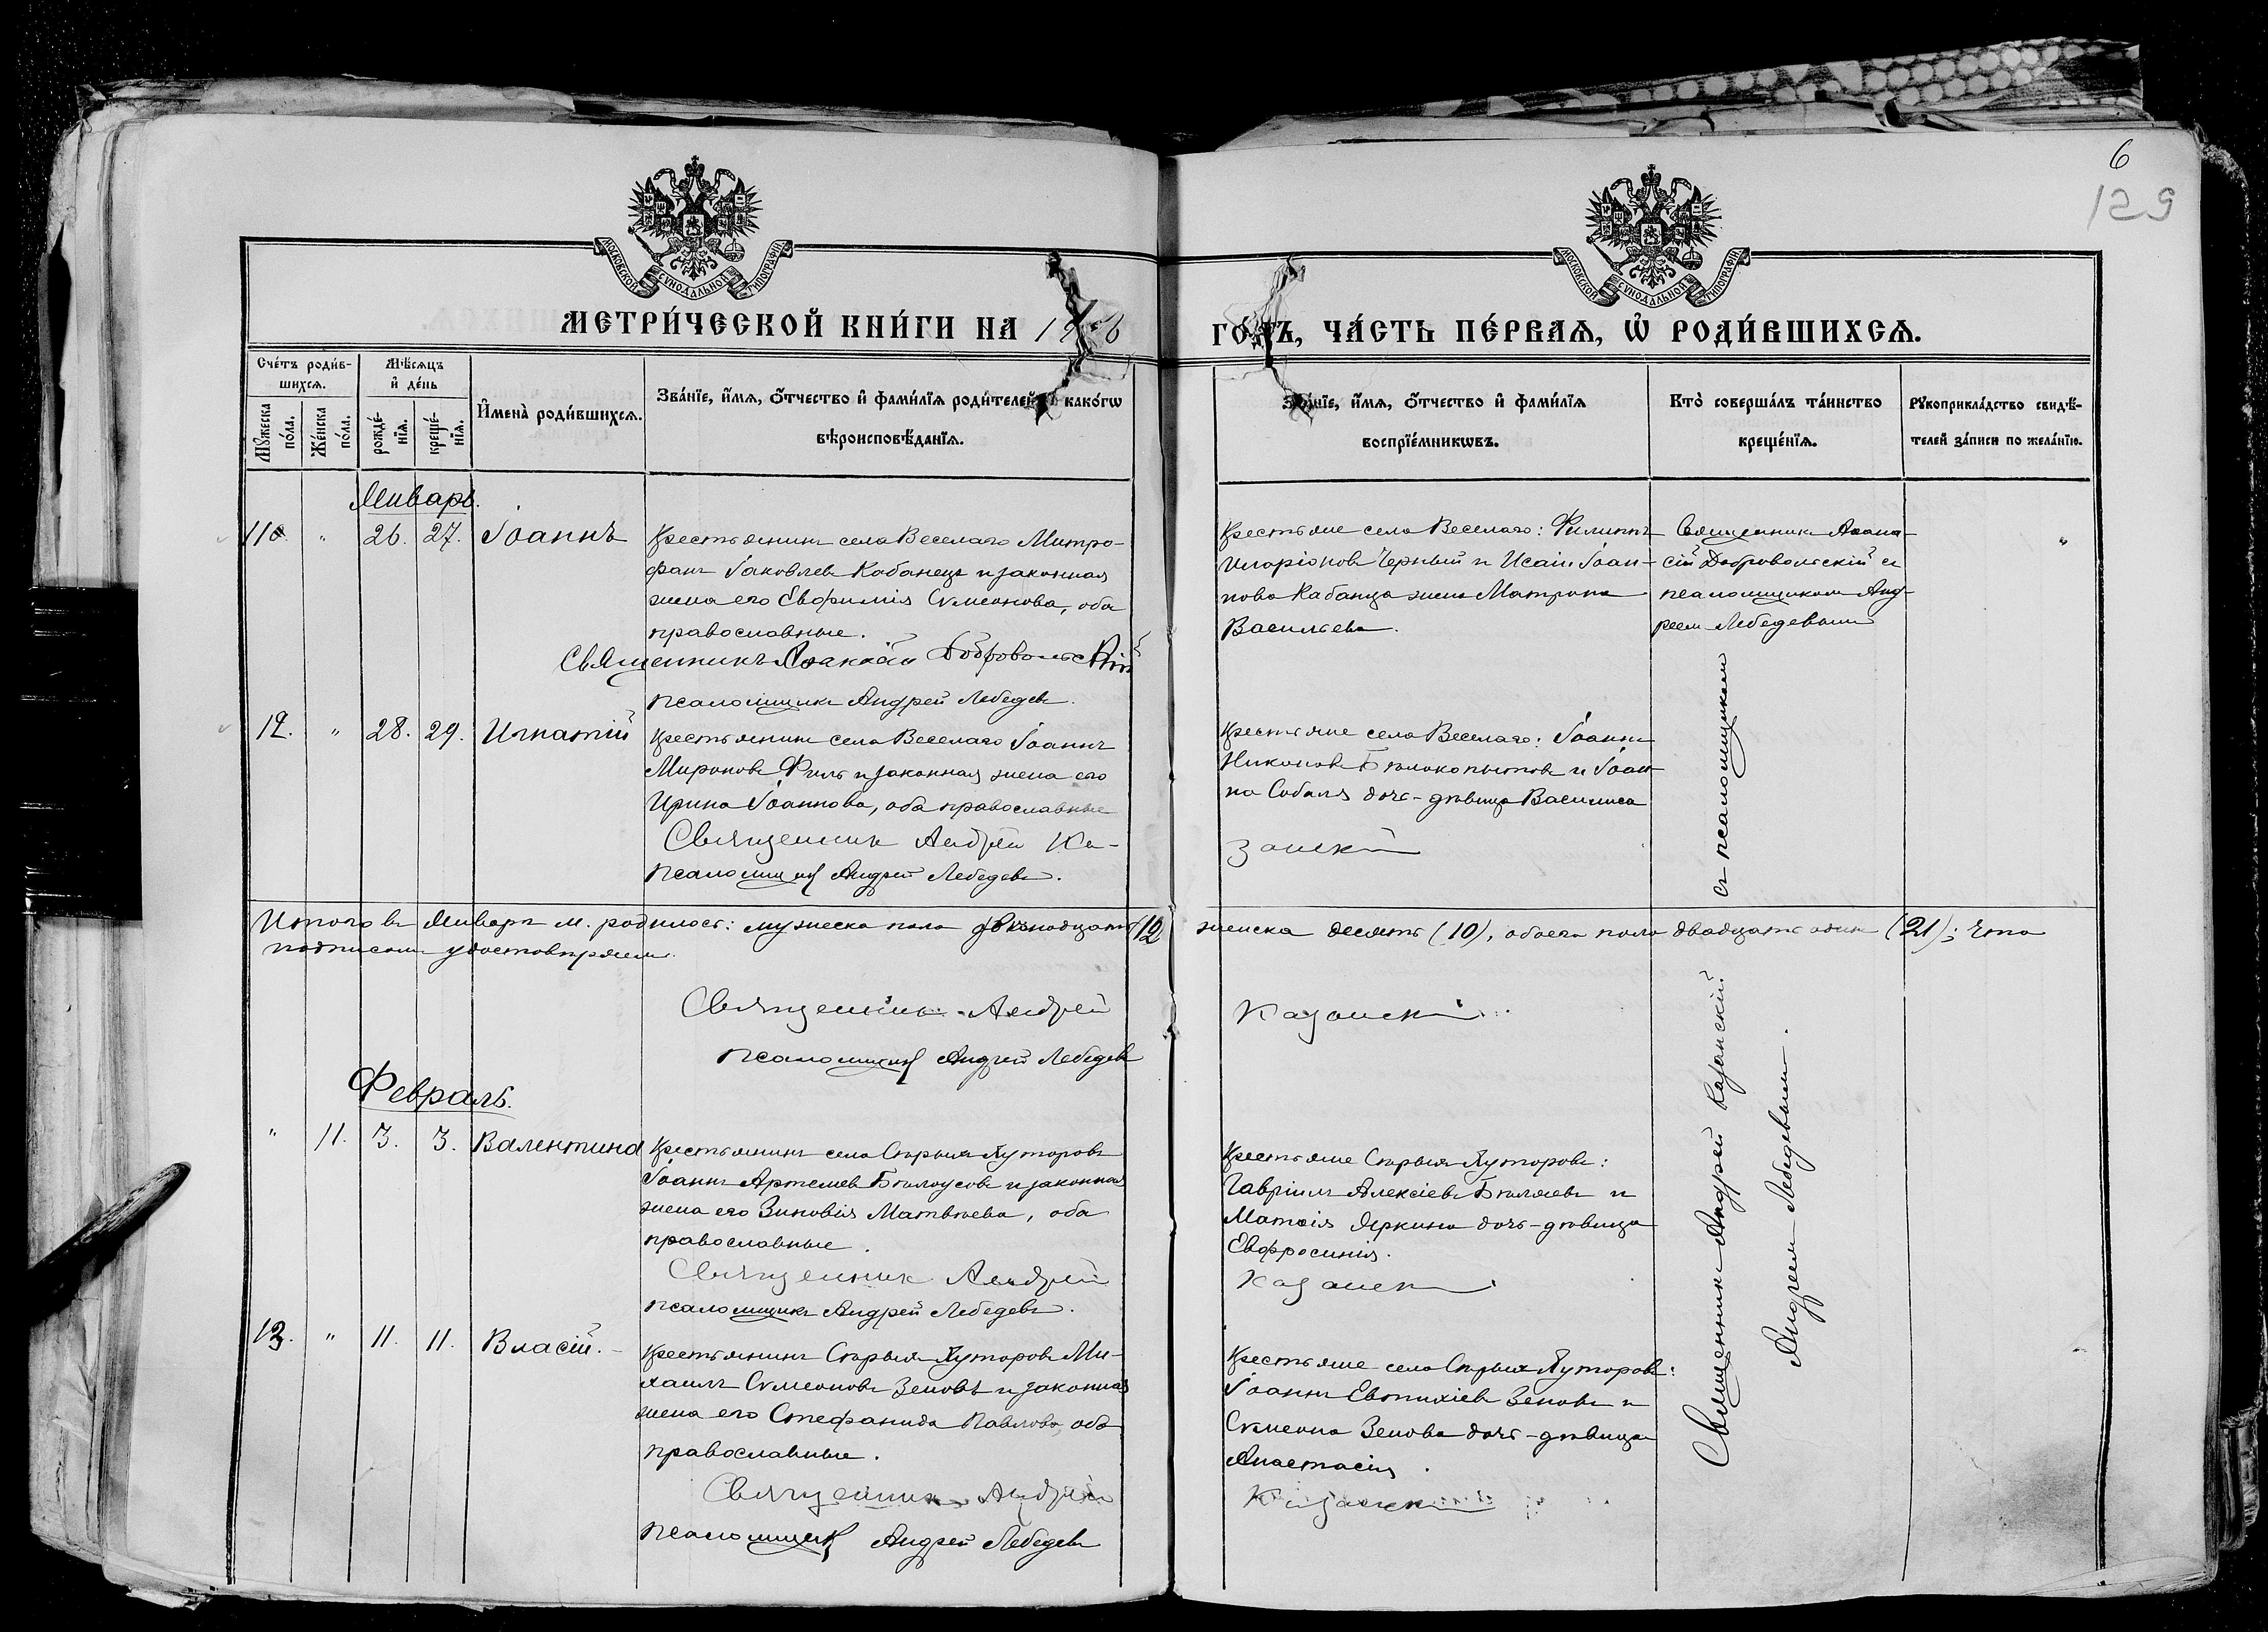 6
129
МОСКОВСКОЙ СѴНОДАЛЬНОЙ ТИПОГРАФІИ
МОСКОВСКОЙ СѴНОДАЛЬНОЙ ТИПОГРАФІИ
МЕТРИ́ЧЕСКОЙ КНИ́ГИ НА 19 6 ГО́ДЪ, ЧА́СТЬ ПЕ́РВАѦ, Ѡ҆ РОДИ́ВШИХСѦ.
Сче́тъ роди́в-
шихсѧ.
Мꙋ́жеска по́ла.
Же́нска по́ла.
Мѣ́сѧцъ
и҆ де́нь
рожде́-
нїѧ.
креще́-
нїѧ.
И҆мена̀ роди́вшихсѧ.
Зва́нїе, и҆́мѧ, ѻ҆́тчество и҆ фами́лїѧ роди́телей како́гѡ
вѣроисповѣ́данїѧ.
Зва́нїе, и҆́мѧ, ѻ҆́тчество и҆ фами́лїѧ
воспрїе́мникѡвъ.
Кто̀ соверша́лъ та́инство
креще́нїѧ.
Рꙋкоприкла́дство свидѣ́-
телей за́писи по жела́нїю.
Январь.
11. " 26. 27. Іоаннъ
Крестьянинъ села Веселаго Митро-
фанъ Іаковлевъ Кабанецъ и законная
жена его Евфимія Сѵмеонова, оба
православные.
Священникъ Добровольскій
Псаломщикъ Андрей Лебедевъ.
Крестьяне села Веселаго: Филиппъ
Иларіоновъ Черный и Исаіи Іоан-
нова Кабанца жена Матрона
Васильева.
Священникъ Аѳана-
сій Добровольскій съ
псаломщикомъ Анд-
реемъ Лебедевымъ
"
12. " 28. 29. Игнатій
Крестьянинъ села Веселаго Іоаннъ
Мироновъ Филь и законная жена его
Ирина Іоаннова, оба православные
Священникъ Андрей Ка-
занскій
Псаломщикъ Андрей Лебедевъ.
Крестьяне села Веселаго: Іоаннъ
Никоновъ Бѣлокопытовъ и Іоан-
на Собаля дочь-дѣвица Василиса
Итого въ Январѣ м. родилось: мужеска пола двѣнадцать (12) женска десять (10), обоего пола двадцать одинъ (21); что
подписомъ удостовѣряемъ.
Священникъ Андрей Казанскій
Псаломщикъ Андрей Лебедевъ
Февраль.
" 11. 3. 3. Валентина
Крестьянинъ села Старыхъ Хуторовъ
Іоаннъ Артемьевъ Бѣлоусовъ и законная
жена его Зиновія Матвѣева, оба
православные.
Священникъ Андрей Казанскій
Псаломщикъ Андрей Лебедевъ.
Крестьяне Старыхъ Хуторовъ:
Гавріилъ Алексіевъ Бѣляевъ и
Матѳія Яркина дочь-дѣвица
Евфросинія.
13. " 11. 11. Власій.
Крестьянинъ Старыхъ Хуторовъ Ми-
хаилъ Сѵмеоновъ Зеновъ и законная
жена его Стефанида Павлова, оба
православные.
Священникъ Андрей Казанскій
Псаломщикъ Андрей Лебедевъ
Крестьяне села Старыхъ Хуторовъ:
Іоаннъ Евтихіевъ Зеновъ и
Сѵмеона Зенова дочь-дѣвица
Анастасія.
Священникъ Андрей Казанскій съ псаломщикомъ
Андреемъ Лебедевымъ.